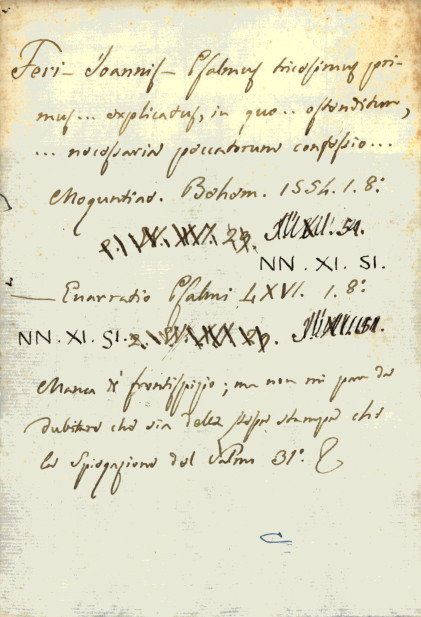 Feri- Joannis- Psalmus tricesimus pri-
mus... explicatus, in quo.. ostenditur,
... necessaria peccatorum confessio...
Moguntiae. Behem. 1554. 1. 8:
29. 51.
NN. XI. SI.
— Enarratio Psalmi LXVI. 1. 8:
NN. XI. SI.
Manca il frontispizio; ma non mi par da
dubitare che sia della stessa stampa che
la Spiegazione del Salmo 31: